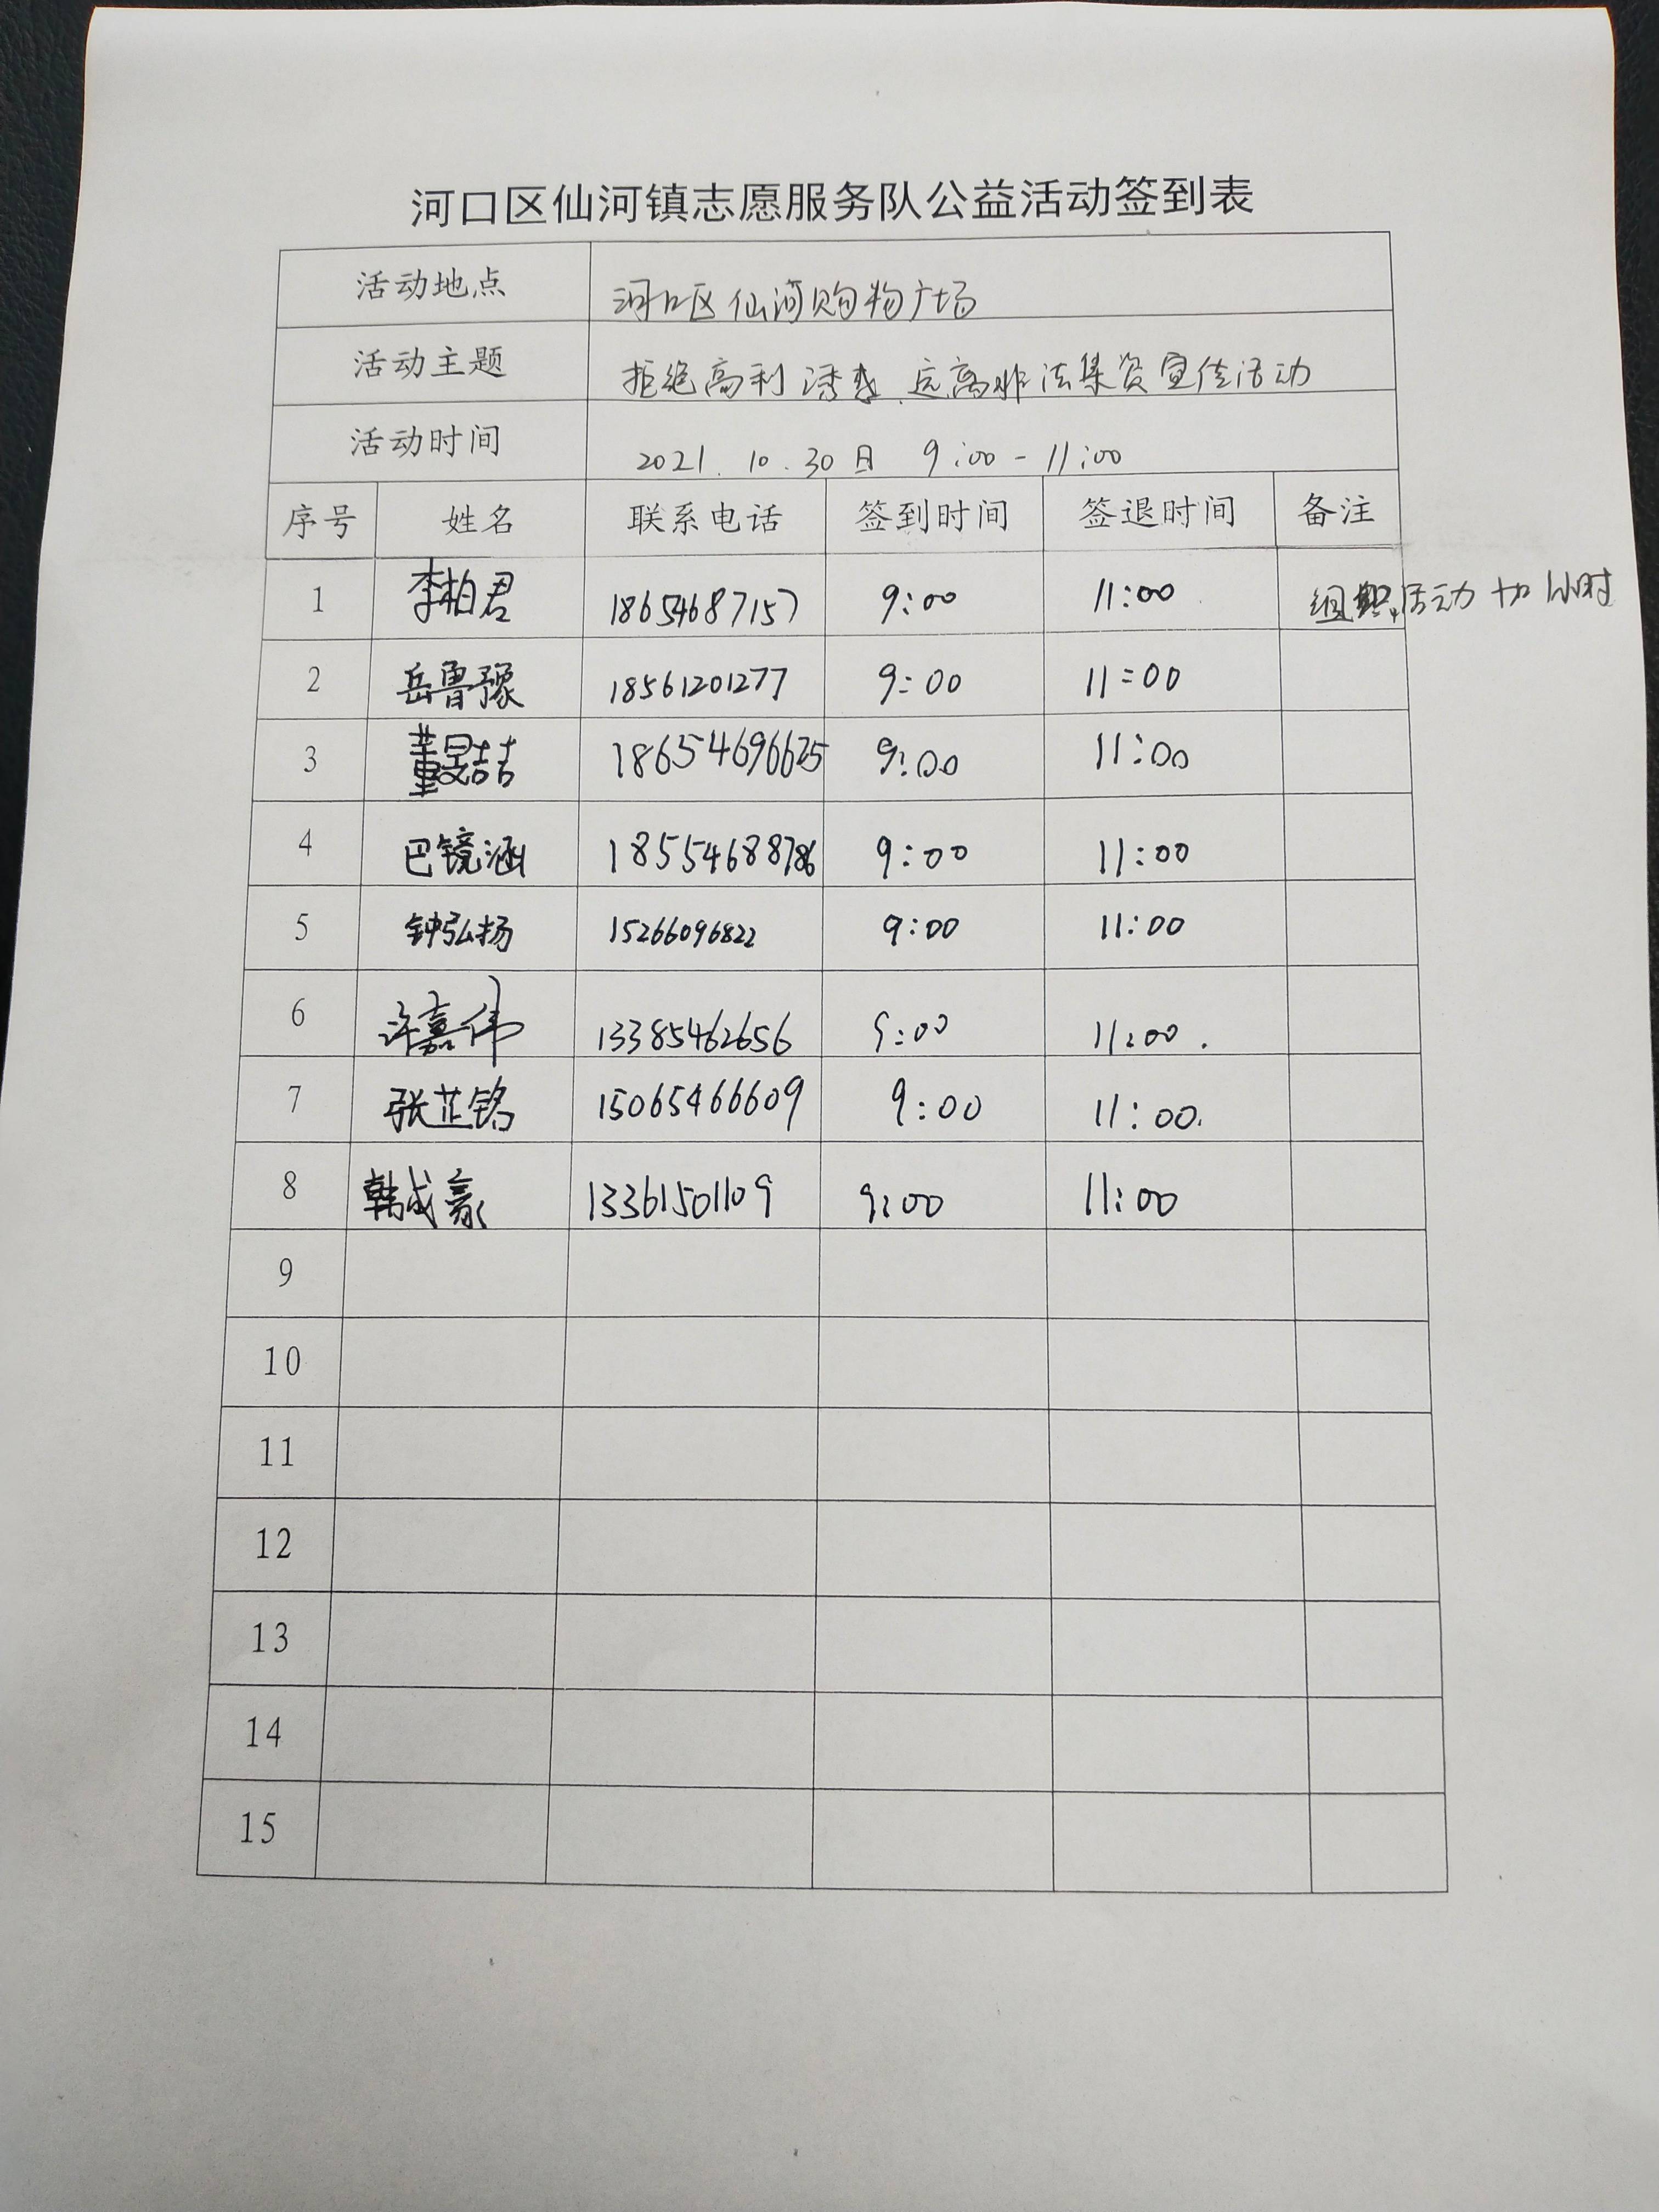 河口区仙河镇志愿服务队公益活动签到表
活动地点 河口区仙河购物广场
活动主题 拒绝高利诱惑、远离非法集资宣传活动
活动时间 2021.10.30日 9:00-11:00
序号 姓名 联系电话 签到时间 签退时间 备注
1 李柏君 18654687157 9:00 11:00 组织活动加1小时
2 岳鲁豫 18561201277 9:00 11:00
3 董昱喆 18654696625 9:00 11:00
4 巴镜涵 18554688786 9:00 11:00
5 钟弘扬 15266096822 9:00 11:00
6 许嘉伟 13385462656 9:00 11:00.
7 张芷铭 15065466609 9:00 11:00.
8 韩成豪 13361501109 9:00 11:00
9
10
11
12
13
14
15